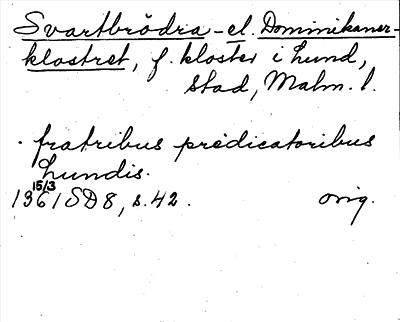 Svartbrödra- el. Dominikaner-
klostret, f. kloster i Lund,
stad, Malm. l.
· fratribus predicatoribus
Lundis.
15/3
1361 SD 8, s. 42. orig.